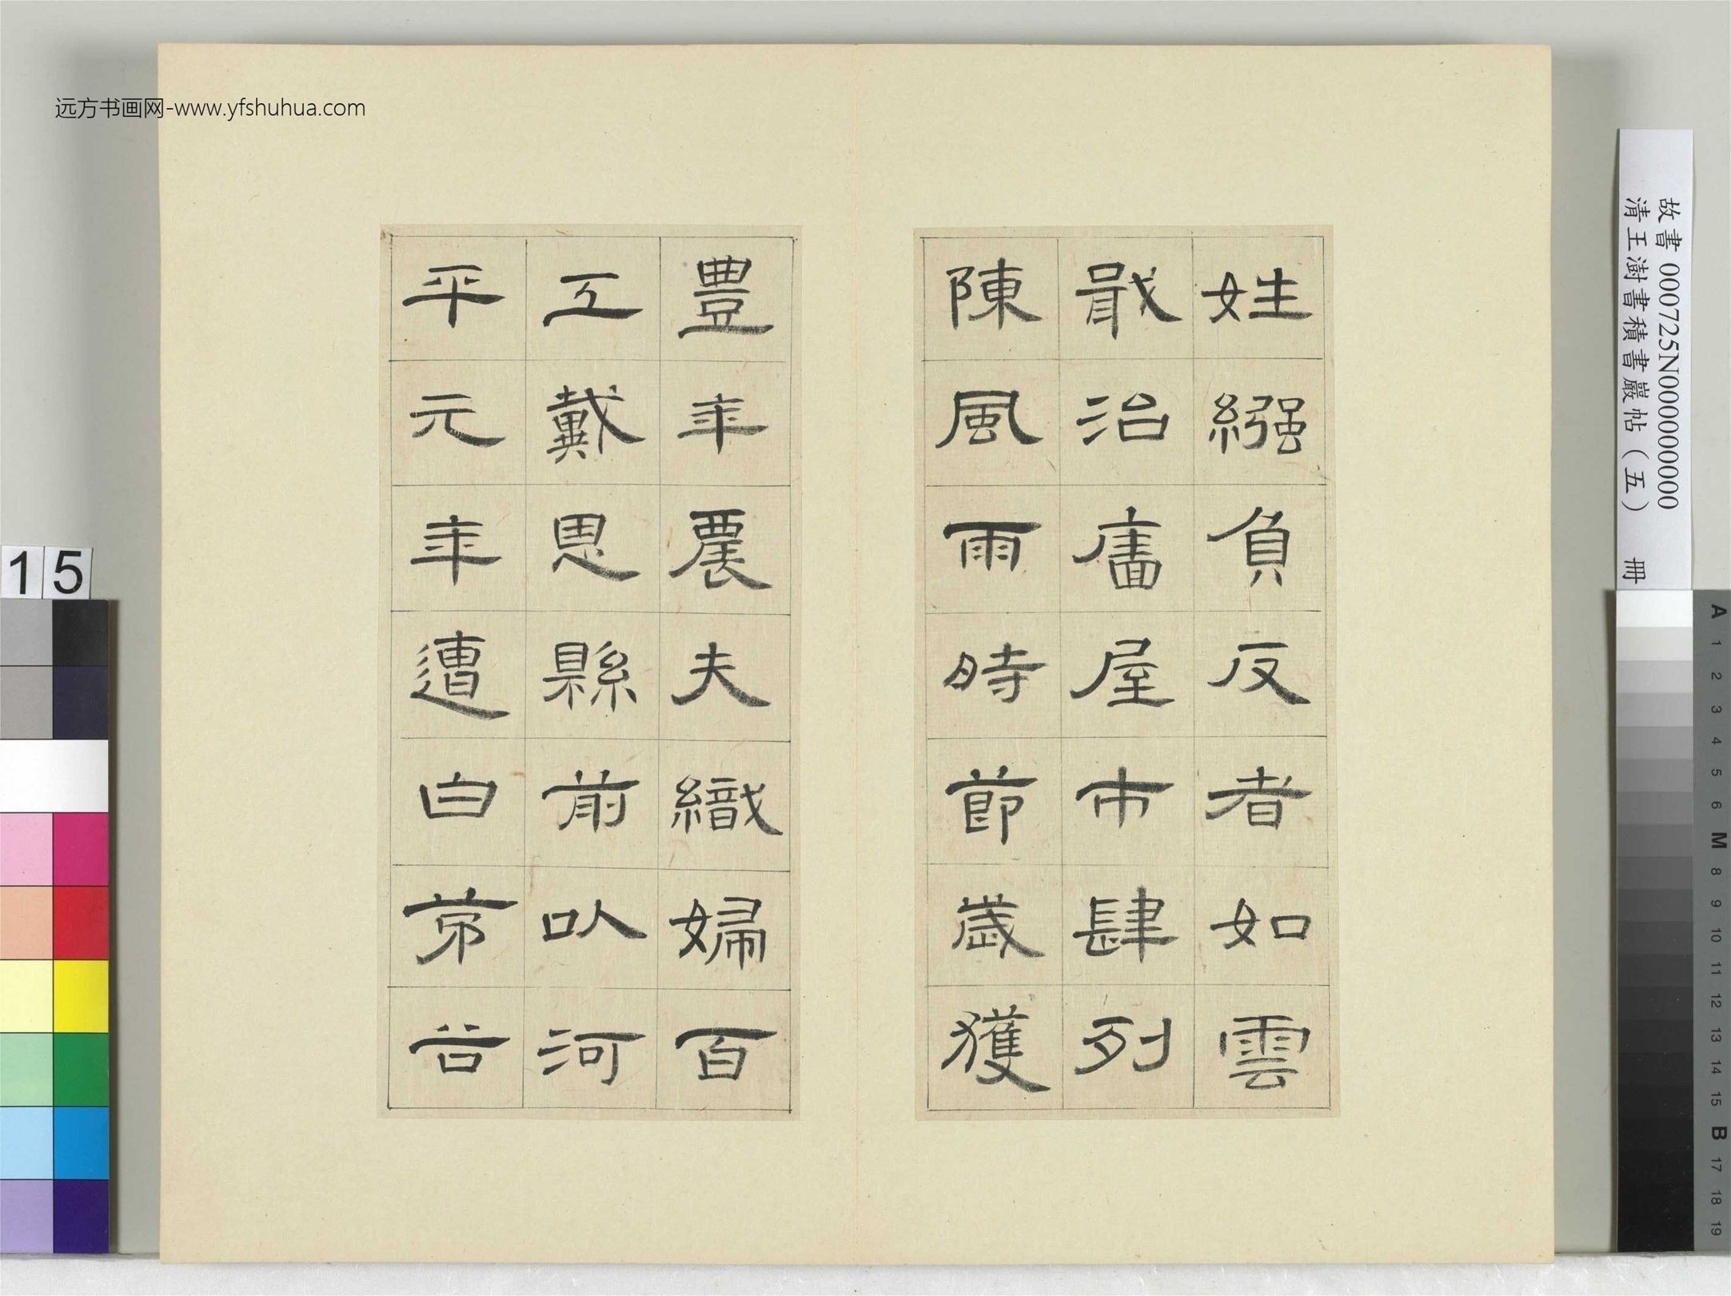 远方书画网-www.yfshuhua.com
姓繈負反者如雲
戢治廧屋市肆列
陳風雨時節歲獲
豊年農夫織婦百
工戴恩縣前以河
平元年遭白茅谷
故書 000725N000000000
清王澍書積書巖帖（五） 冊
15
A
1
2
3
4
5
6
M
8
9
10
11
12
13
14
15
B
17
18
19